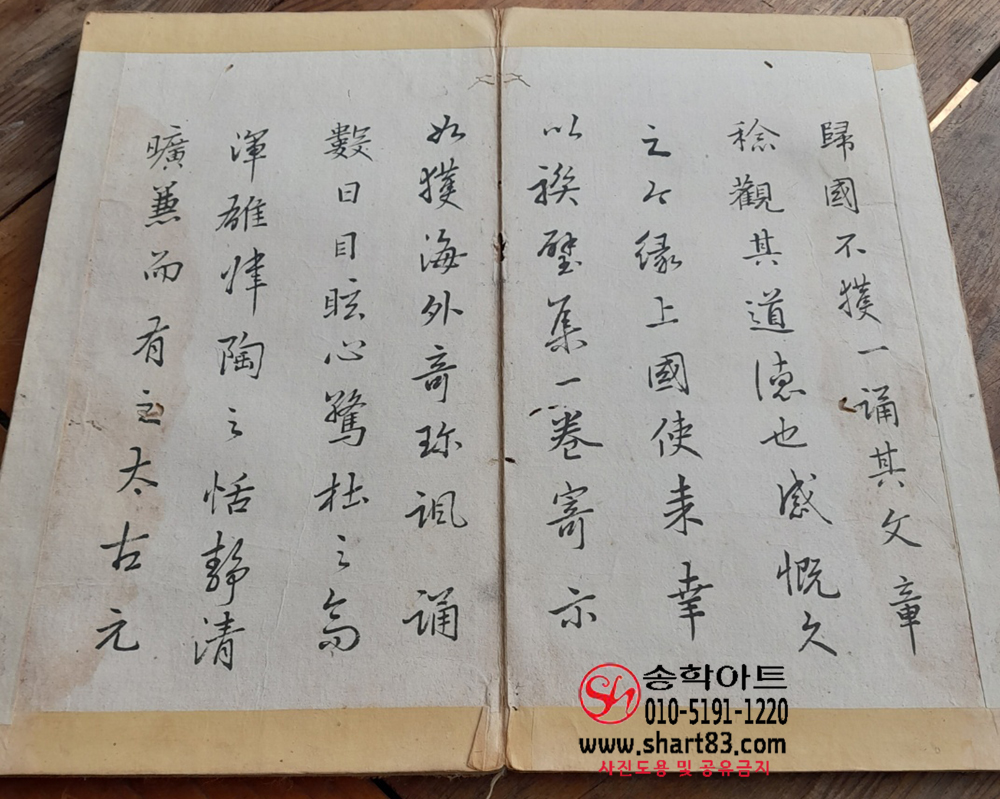 歸國不獲一誦其文章
稔觀其道德也感慨久
之今緣上國使来幸
以禊璧集一卷寄示
如獲海外奇珎諷誦
數日目眩心驚杜之高
渾雄偉陶之恬靜清
曠兼而有之太古元
송학아트
010-5191-1220
www.shart83.com
사진도용 및 공유금지